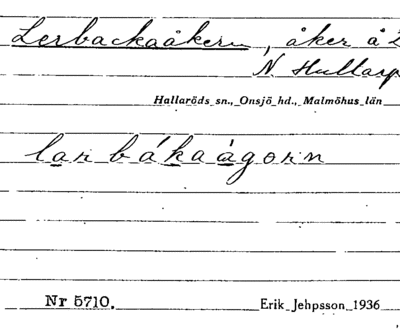 Lerbackaåkern, åker å 2
N. Hullarp
Hallaröds sn., Onsjö hd., Malmöhus län
Nr 5710.
Erik Jehpsson 1936